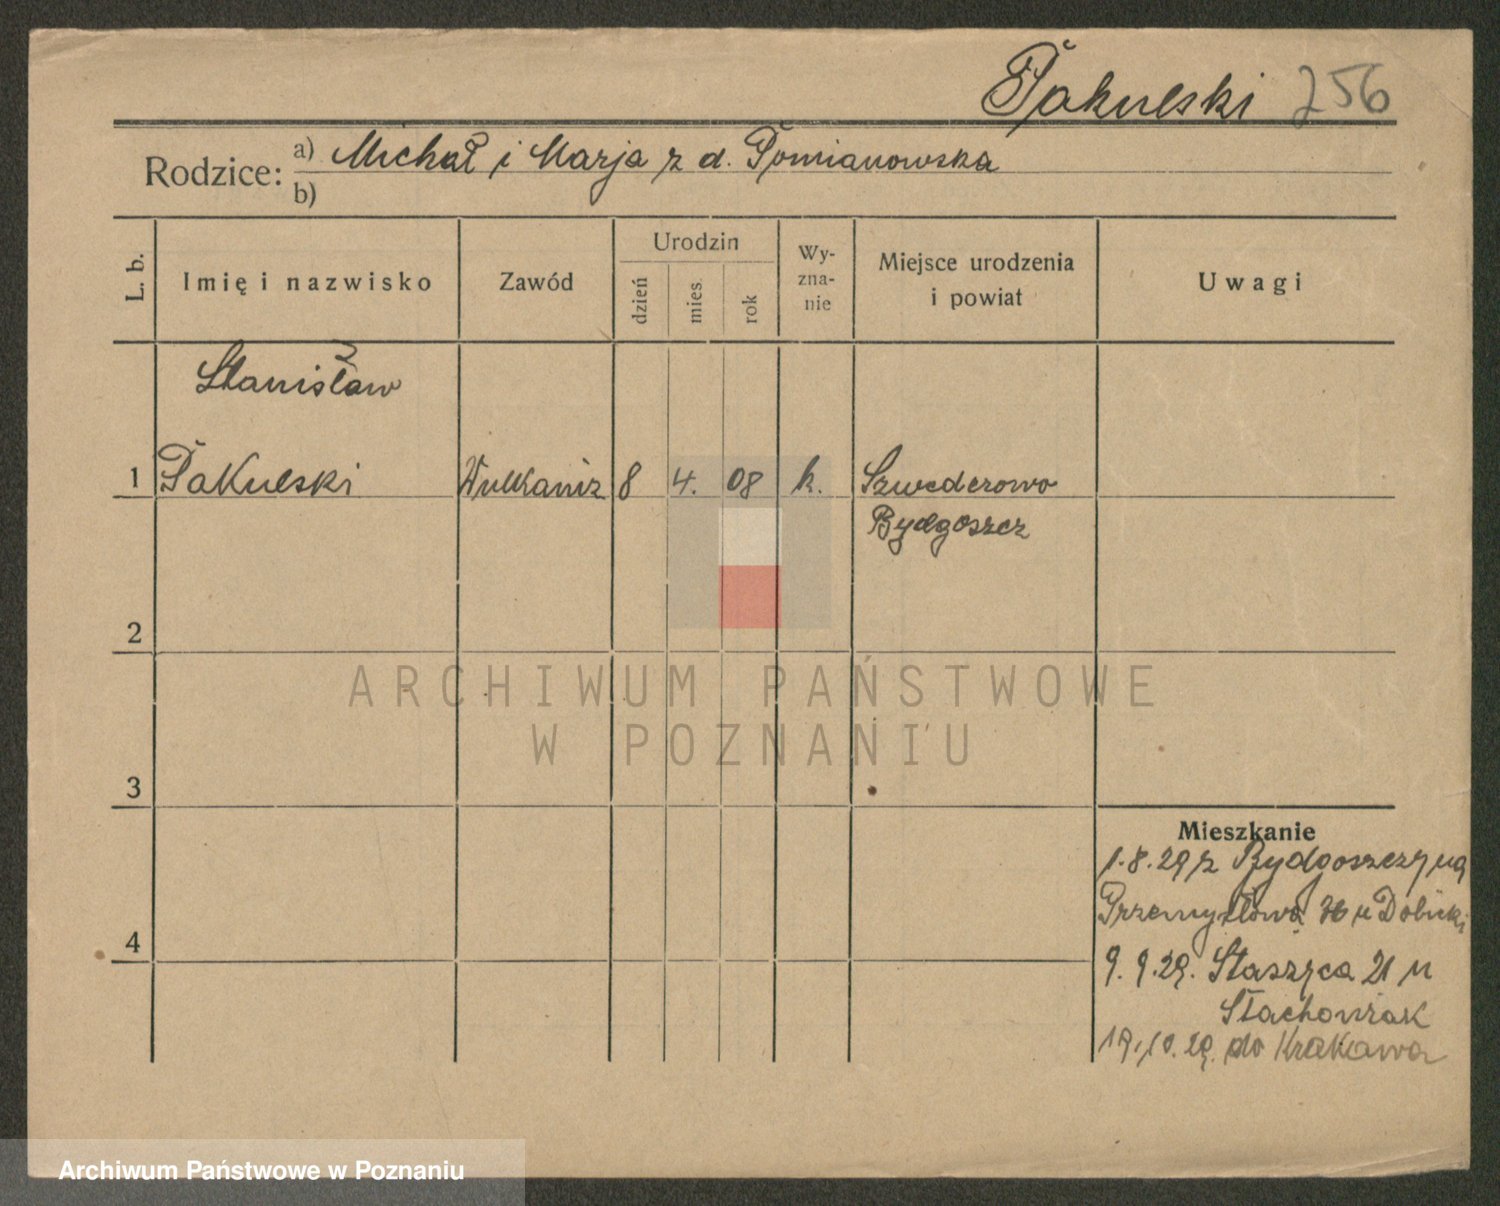 Pakulski 256
Rodzice: a) Michał i Marja z d. Pomianowska
b)
L. b.
Imię i nazwisko
Zawód
Urodzin
dzień
mies.
rok
Wy-
zna-
nie
Miejsce urodzenia
i powiat
Uwagi
Stanisław
1 Pakulski Wulkaniz 8 4. 08 k. Szwederowo
Bydgoszcz
2
ARCHIWUM PAŃSTWOWE
W POZNANIU
3
Mieszkanie
1.8.29 z Bydgoszczy na
Przemysłową 36 u Dolicki
4
9.9.29. Staszyca 21 u
Stachowiak
19.10.29. do Krakowa
Archiwum Państwowe w Poznaniu